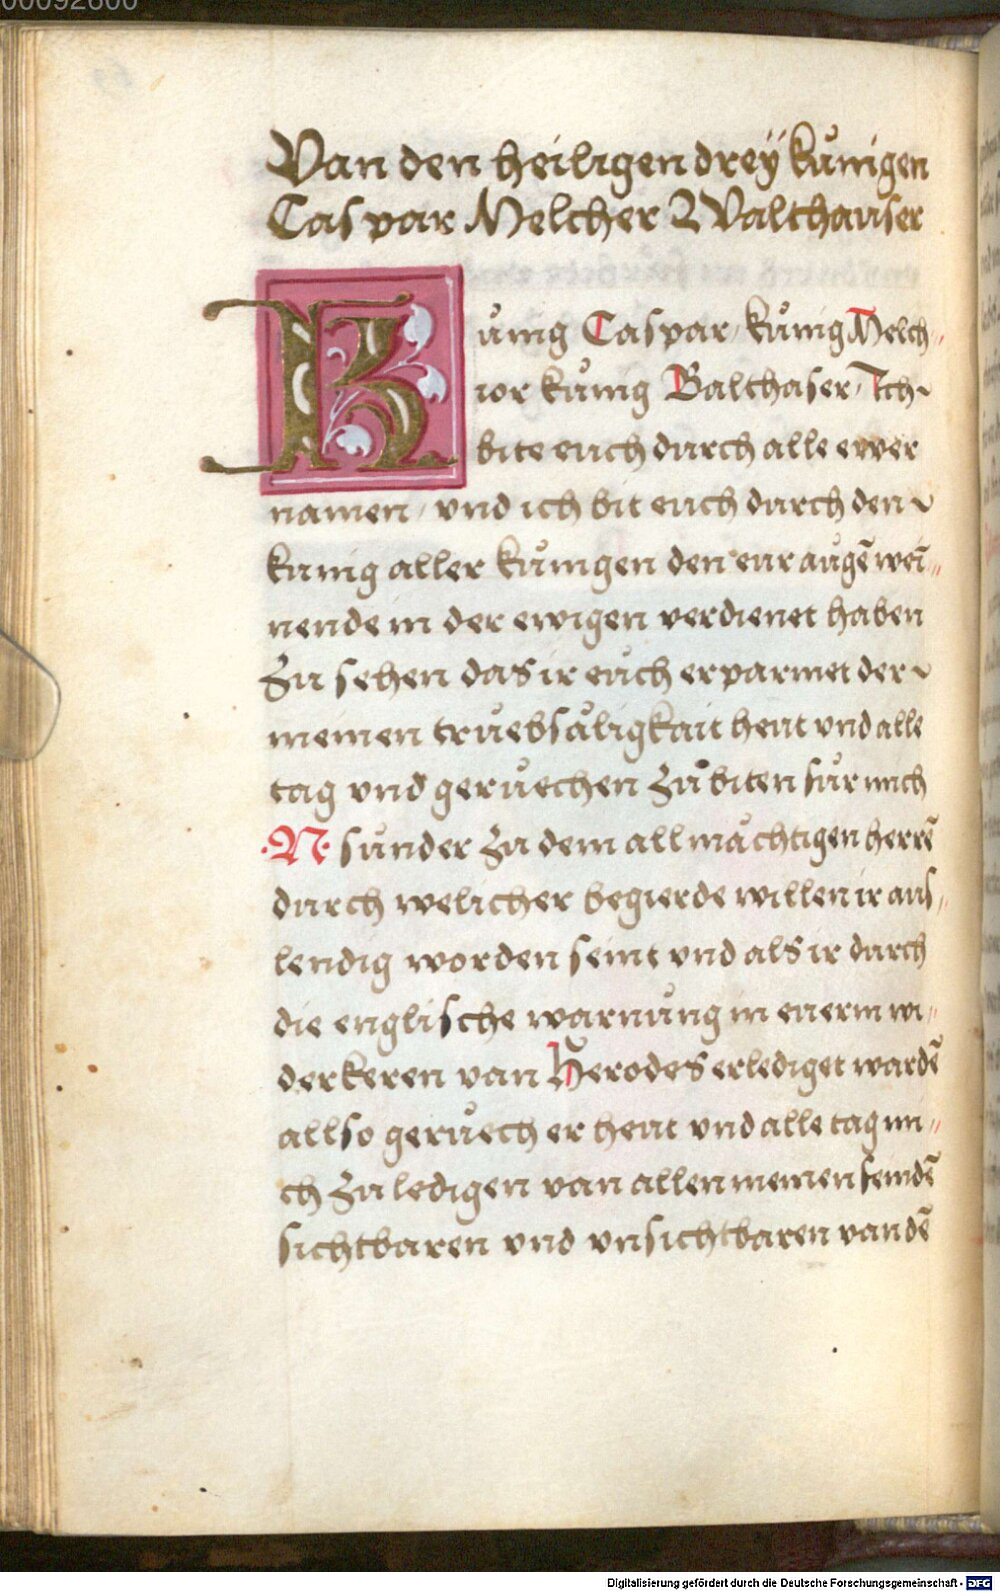 00092600
Van den heiligen dreÿ kunigen
Caspar Melcher 2 Walthauser
Kůnig Caspar, kůnig Melch〃
ior kůnig Balthaser, Ich
bite euch durch alle ewer
namen, vnd ich bit euch durch den
kunig aller kůnigen den eur augē wei〃
nende in der ewigen verdienet haben
Zu sehen das ir euch erparmet der
meinen truebsåligkait heut vnd alle
tag vnd geruechen Zů biten fur mich
·N· sunder Zu dem allmåchtigen herrē
durch welicher begierde willen ir aus〃
lendig worden seint vnd als ir durch
die englische warnung in euerm wi〃
derkeren van Herodes erlediget wardē
allso geruech er heut vnd alle tag mi〃
ch Zu ledigen van allen meinen feindē
sichtbaren vnd vnsichtbaren van dē
Digitalisierung gefördert durch die Deutsche Forschungsgemeinschaft - DFG